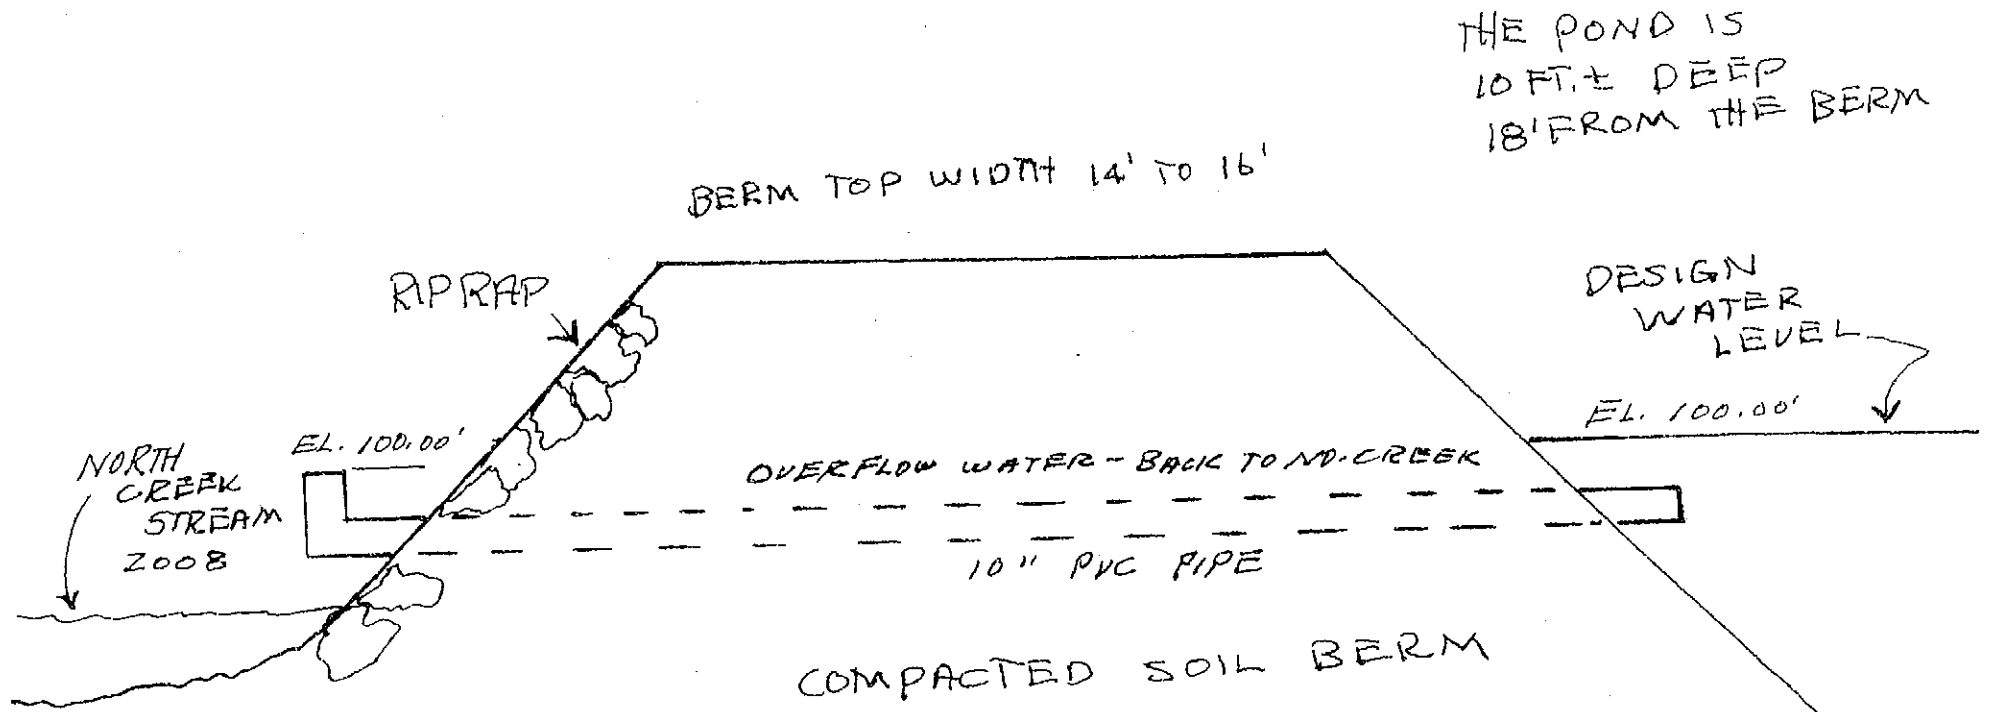 THE POND IS
10 FT.± DEEP
18' FROM THE BERM
BERM TOP WIDTH 14' TO 16'
RIPRAP
DESIGN
WATER
LEVEL
EL. 100.00'
EL. 100.00'
NORTH
CREEK
STREAM
2008
OVERFLOW WATER - BACK TO NO. CREEK
10" PVC PIPE
COMPACTED SOIL BERM